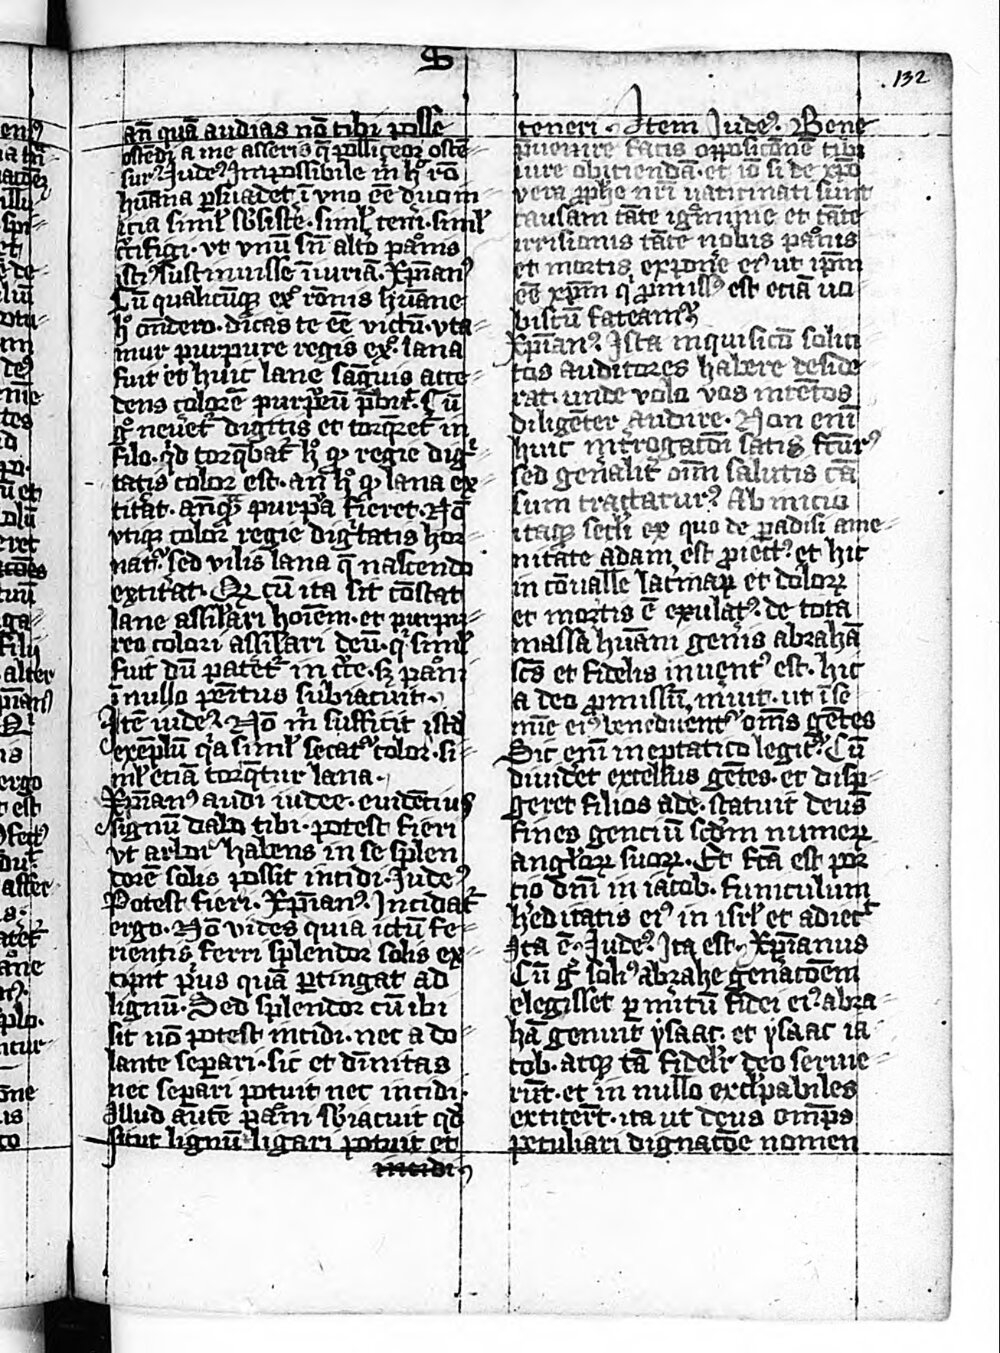 S
132
an̄ quā audias nō tibi posse
ostēdi a me asseris q̄ polliceor ostē
sur⁹ Iude⁹ Impossibile m̄ h͛ rō
hūana psuadet ī vno ēe duom
simil̓ sb̓sistē · simil̓ teneri · simil̓
c̓cifigi · vt vnū sn̄ alt̓o pa͛nis
sustinuisse īiuriā · Xp̄ian⁹
Cū qualicūq; ex̓ rōnis hūane
h͛ cōndero · dicas te ēe victū · vta
mur purpure regis ex̓ · lana
fuit et huic lane sāguis acce
dens colorē purpureū p̄buit · Cū
g͛ neu̓et̓ digitis et torq̄ret̓ in
filo · qd̓ torq̄bat̓ h͛ q̓ regie dig
tatis color est · an h͛ q̓ lana ex
tit̓at · an̄q̄ȝ purp̓a fieret · Nō
vtiq; color regie dig̓tatis hor
nat̓ · sed vilis lana q̄ nascendo
extit̓at · Qr̓ cū ita sit cōstat
lane assil̓ari hoīem · et purpu
reo colori assil̓ari deū · q̓ simil̓
fuit dū patet̓ in c̓ce · sȝ pa͛ni
ī nullo pēitus subiacuit ·
Itē iude⁹ · Nō m̄ sufficit istd̓
exēplū q̓a simil̓ secat̓ color · si
mil̓ etiā torq̄tur lana ·
Xp̄ian⁹ audi iudee · euidētius
signū dabo tibi · potest fieri
vt arbor habens in se splen
dorē solis possit incidi · Iude⁹
Potest fieri · Xp̄ian⁹ · Incidat̓
ergo · Nō vides quia ictū fe
rientis ferri splendor solis ex
cipit p̓us quā ptingat ad
lignū · Sed splendor cū ibi
sit nō potest incidi · nec a do
lante separi · sic et diuītas
nec separi potuit nec incidi ·
Illud autē pa͛ni sb̓iacuit qd̓
sicut lignū ligari potuit et
incidi
teneri · Item Iude⁹ · Bene
p̄uenire facis opp̄osicōnē tibi
iure obiciendā · et iō si de xp̄o
vera pph̓e nr̄i vaticinati sunt
causam tāte ig̓minie et tāte
irrisionis tāte nobis pa͛nis
et mortis expone ei⁹ ut ip̄m
ēe xp̄m q̓ pmiss⁹ est etiā uo
biscū fateam̓
Xp̄ian⁹ Ista inquisicō solici
tos auditores habere deside
rat · unde volo vos intētos
diligēter audire · Non enī
huic int̓rogatōi satis fctur⁹
sed genalit̓ oīm salutis cā
sum tractatur⁹ Ab inicio
itaq; scl̓i ex quo de padisi ame
nitate adam est piect⁹ et hic
in cōualle lacīmaꝝ et doloꝝ
et mortis ē exulat⁹ de tota
massa hūani gen̓is abrahā
scs̄ et fidelis inuent⁹ est · hic
a deo pmissū inuit · ut ī se
mīe ei⁹ benedicent̓ oms̄ gētes
Sic enī in eptatico legit̓ Cū
diuidet excelsus gētes · et disp
geret filios ade · statuit deus
fines genciū scd̓m numeꝝ
angl̓oꝝ suoꝝ · Et fc̄a est por
cio dn̄i in iacob · funiculum
h̓editatis ei⁹ in isrl̓ et adiec̓t
Ita ē · Iude⁹ · Ita est · Xp̄ianus
Cū g͛ soli⁹ abrahe gen̓acōem
elegisset p m̓itū fidei ei⁹ abra
hā genuit ysaac · et ysaac ia
cob · atq; tā fidel̓r deo serue
rūt · et in nullo exc̓lpabiles
extitert̄ · ita ut deus om̄ps
peculiari dignacōe nomen